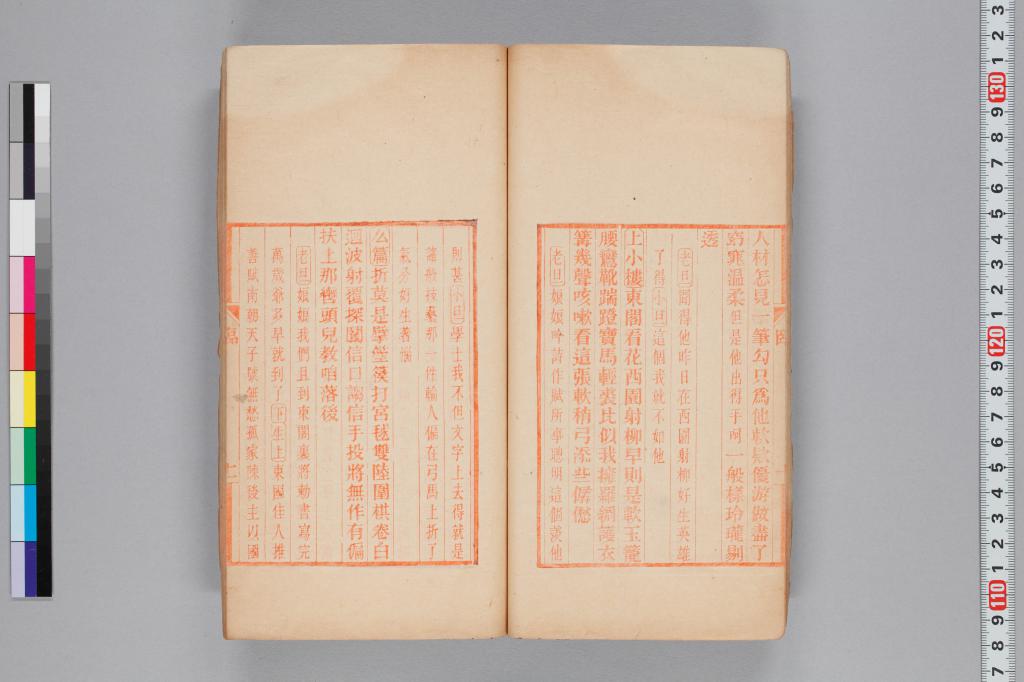 人材怎見一筆勾只爲他軟款優游做盡了
窮寒溫柔但是他出得手呵一般樣玲瓏剔
透
老旦聞得他昨日在西園射柳好生英雄
了得小旦這個我就不如他
上小樓東閣看花西園射柳早則是軟玉籠
腰鸞靴踹蹬寶馬輕裘比似我擁羅綢護衣
篝幾聲咳嗽看這張軟稍弓添些僝僽
老旦娘娘吟詩作賦所爭聰明這個讓他
則甚小旦學士我不但文字上去得就是
諸般技藝那一件輸人偏在弓馬上折了
氣分好生著惱
么篇折莫是擘箜篌打宮毬雙陸圍棋卷白
迴波射覆探鬮信口謅信手投將無作有偏
扶上那轡頭兒教咱落後
老旦娘娘我們且到東閣裏將勅書寫完
萬歲爺多早就到了下生上東國佳人推
善賦南朝天子號無愁孤家陳後主以國
十